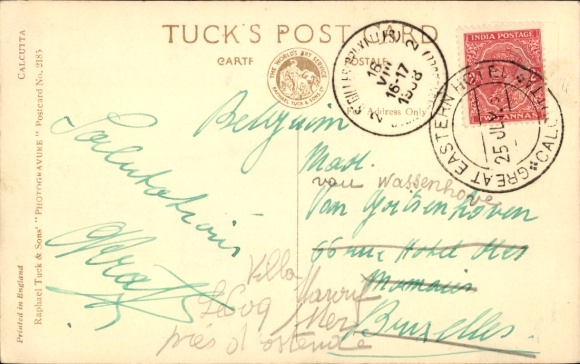 TUCK'S POST CARD
CARTE POSTALE
THE WORLD'S ART SERVICE
RAPHAEL TUCK & SONS LTD
Address Only
INDIA POSTAGE
TWO ANNAS
GREAT EASTERN HOTEL CALCUTTA
25 JUL
18
VIII
16-17
1938
CALCUTTA
Raphael Tuck & Sons' "PHOTOGRAVURE" Postcard No. 2185
Printed in England
Salutations
Belgium
Mad.
van Wassenhove
Van Goitsenhoven
66 rue Hotel des
Monnaies
Bruxelles.
Villa
Le Coq s/Mer
près d'ostende